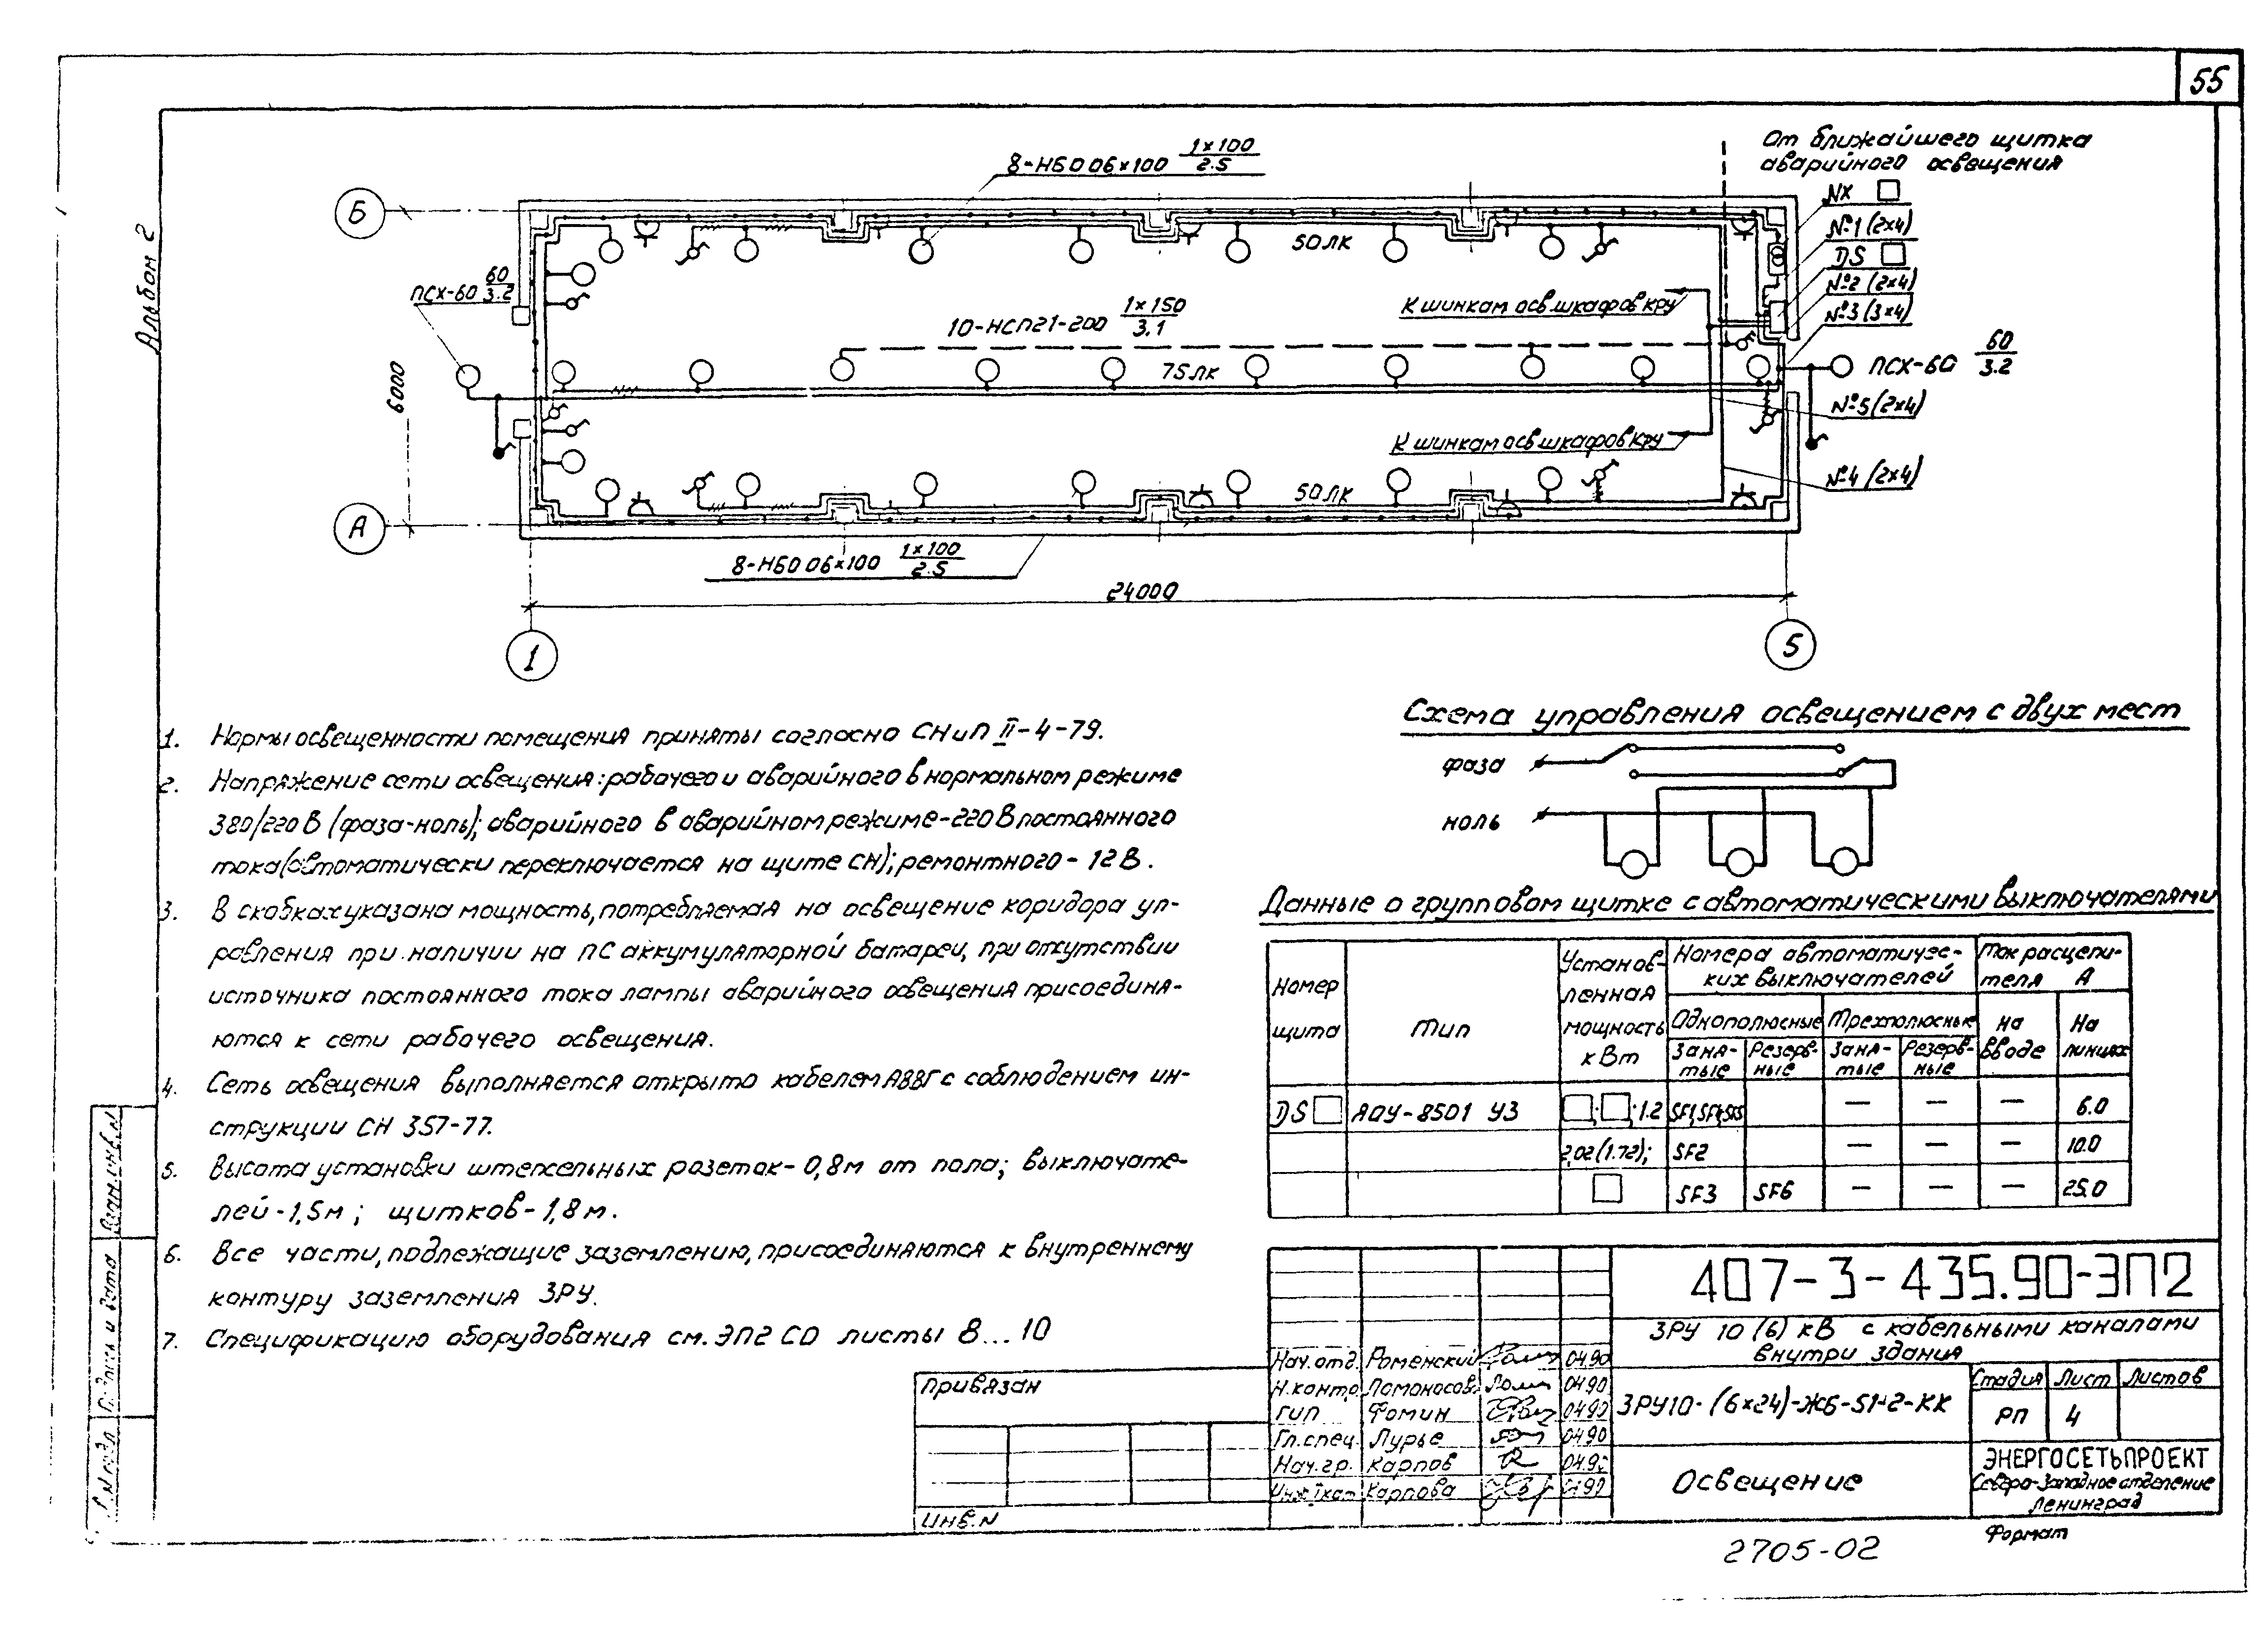 55
Альбом 2
От ближайшего щитка
аварийного освещения
8-НБО 06×100 1×100/2.5
NX
№1 (2×4)
DS
№2 (2×4)
№3 (3×4)
Б
50ЛК
ПСХ-60 60/3.2
10-НСП21-200 1×150/3.1
К шинкам осв.шкафов КРУ
75ЛК
ПСХ-60 60/3.2
№5 (2×4)
6000
К шинкам осв.шкафов КРУ
№4 (2×4)
50ЛК
А
8-НБО 06×100 1×100/2.5
24000
1
5
1. Нормы освещенности помещения приняты согласно СНиП II-4-79.
2. Напряжение сети освещения: рабочего и аварийного в нормальном режиме
380/220 В (фаза-ноль); аварийного в аварийном режиме-220 В постоянного
тока (автоматически переключается на щите СН); ремонтного - 12 В.
3. В скобках указана мощность, потребляемая на освещение коридора уп-
равления при наличии на ПС аккумуляторной батареи, при отсутствии
источника постоянного тока лампы аварийного освещения присоединя-
ются к сети рабочего освещения.
4. Сеть освещения выполняется открыто кабелем АВВГ с соблюдением ин-
струкции СН 357-77.
5. Высота установки штепсельных розеток - 0,8м от пола; выключате-
лей - 1,5м; щитков - 1,8м.
6. Все части, подлежащие заземлению, присоединяются к внутреннему
контуру заземления ЗРУ.
7. Спецификацию оборудования см. ЭП2 СО листы 8...10
Схема управления освещением с двух мест
фаза
ноль
Данные о групповом щитке с автоматическими выключателями
Номер щита
Тип
Установ-ленная мощность кВт
Номера автоматичес-ких выключателей
Ток расцепи-теля А
Однополюсные
Трехполюсные
На вводе
На линиях
Заня-тые
Резерв-ные
Заня-тые
Резерв-ные
DS ЯОУ-8501 У3 ; ;1.2 SF1,SF4,SF5 — — — 6.0
2,02(1.72); SF2 — — — 10.0
SF3 SF6 — — — 25.0
407-3-435.90-ЭП2
ЗРУ 10 (6) кВ с кабельными каналами
внутри здания
Нач.отд. Роменский 04.90
Н.контр. Ломоносов 04.90
ГИП Фомин 04.90
Гл.спец. Лурье 04.90
Нач.гр. Карпов 04.90
Карпова
ЗРУ10-(6×24)-ЖБ-51-2-КК
Стадия Лист Листов
РП 4
Освещение
ЭНЕРГОСЕТЬПРОЕКТ
Северо-Западное отделение
Ленинград
Привязан
Инв.N
Взам.инв.N
Подпись и дата
Формат
2705-02